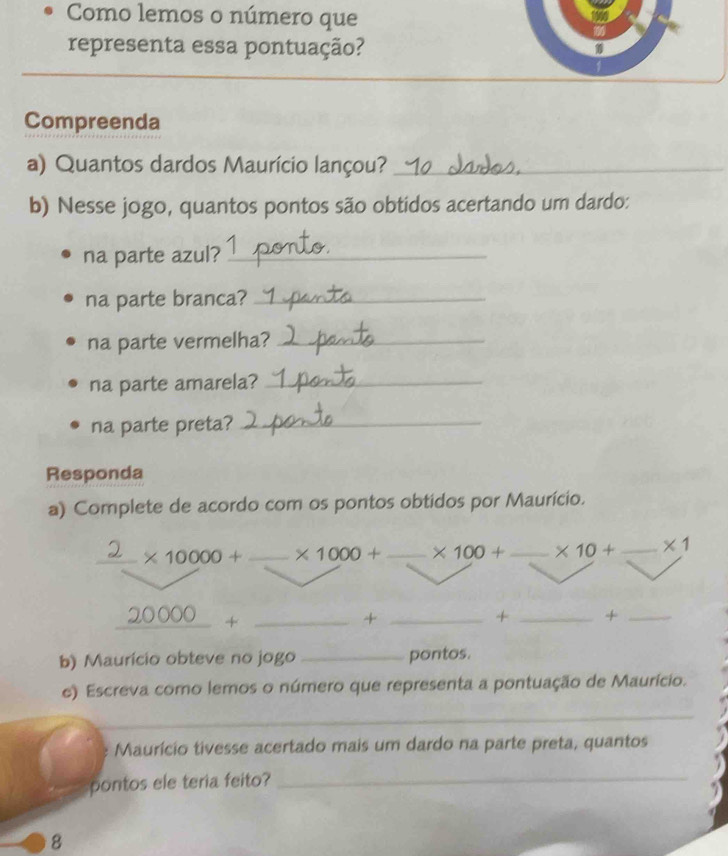 • Como lemos o número que
representa essa pontuação?
1000
100
10
1
Compreenda
a) Quantos dardos Maurício lançou? 10 dardos.
b) Nesse jogo, quantos pontos são obtidos acertando um dardo:
• na parte azul? 1 ponto.
• na parte branca? 1 ponto
• na parte vermelha? 2 ponto
• na parte amarela? 1 ponto
• na parte preta? 2 ponto
Responda
a) Complete de acordo com os pontos obtidos por Maurício.
2 × 10000 + ____ × 1000 + ____ × 100 + ____ × 10 + ____ × 1
20000 + ____ + ____ + ____ + ____
b) Maurício obteve no jogo ____ pontos.
c) Escreva como lemos o número que representa a pontuação de Maurício.
Maurício tivesse acertado mais um dardo na parte preta, quantos
pontos ele teria feito?
8